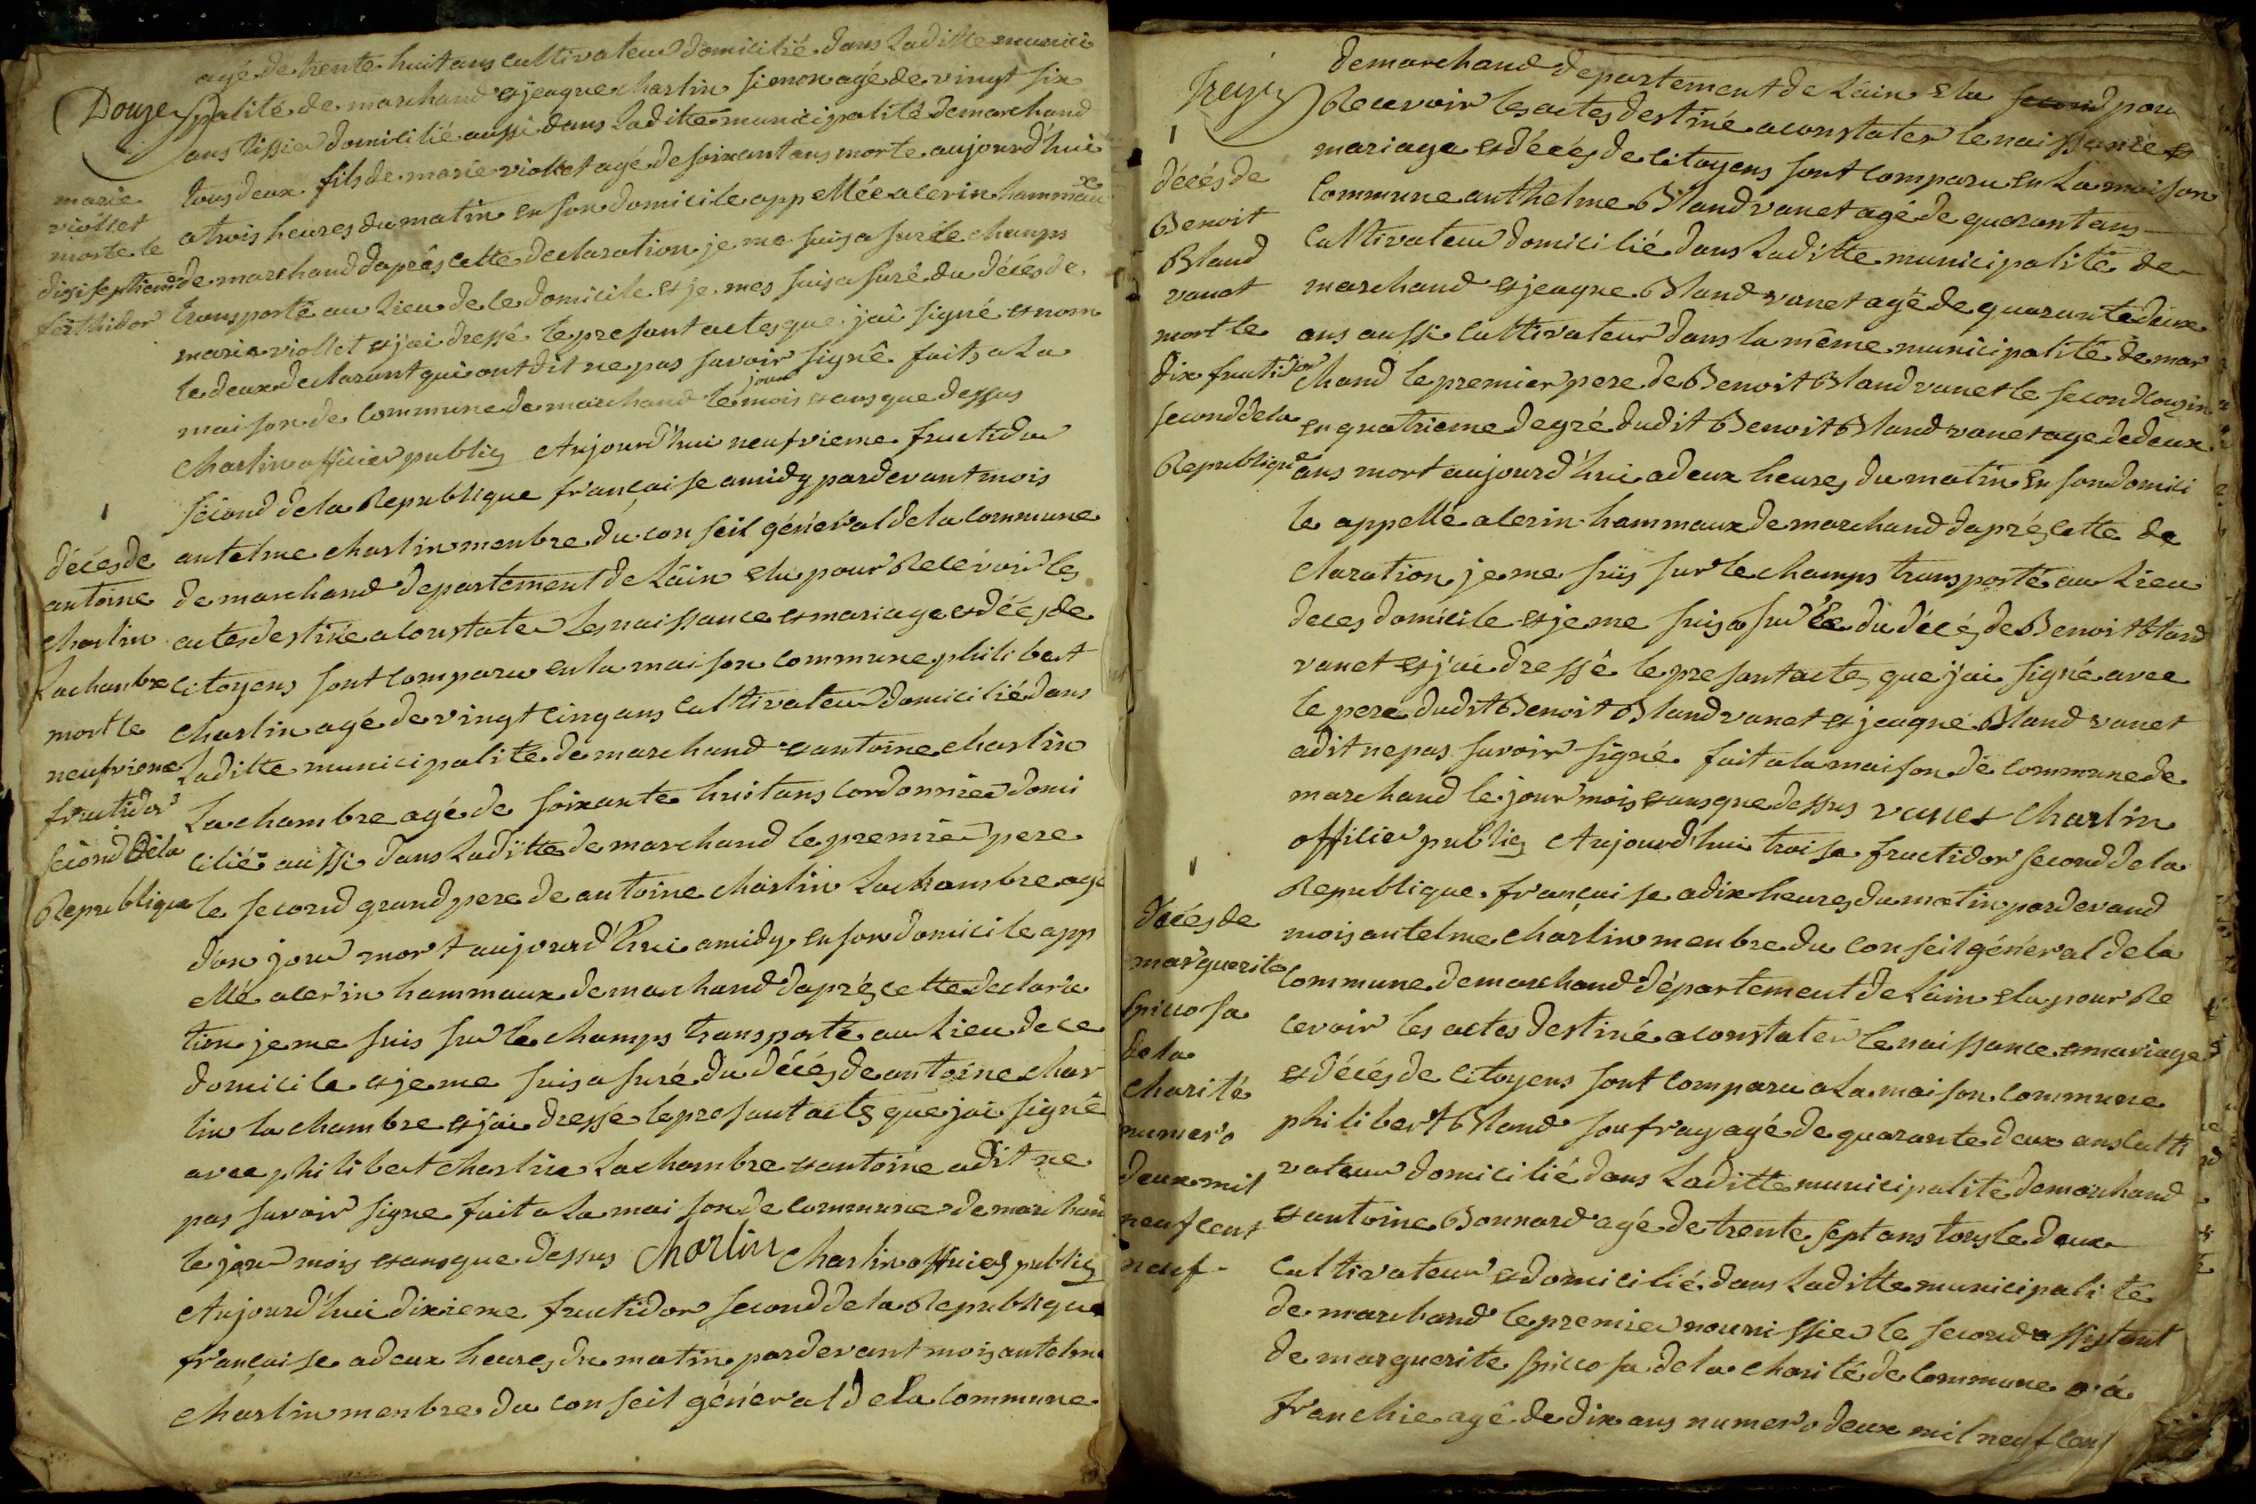 Douze
agé de trente huit ans cultivateur domicilié dans Laditte munici
palité de marchand et jeaque charlin simon agé de vingt six
ans tissier domicilié aussi dans Laditte municipalité demarchand
tous deux fils de marie viollet agé de soixant ans morte aujourd'hui
a trois heures du matin en son domicile appellée a cerin hammaux
de marchand daprés cette declaration je me suis a sur le champs
transporté au Lieu de le domicile et je mes suis asuré du décés de
marie viollet et j'ai dressé le presant actes que j'ai signé et nom
le deux declarant qui ont dit ne pas savoir signé faits a La
maison de commune de marchand le jour mois et ans que dessus
Charlin officier public Aujourd'hui neufvieme fructidor
second de la Republique française a midy pardevant mois
antelme charlin menbre du conseil général de la commune
de marchand departement de Lain elu pour Recevoir les
actes destiné a constater les naissance et mariage et décés de
citoyens sont comparu en la maison commune philibert
charlin agé de vingt cinq ans cultivateur domicilié dans
Laditte municipalité de marchand et antoine charlin
Lachambre agé de soixante huit ans cordonnier domi
cilié aussi dans Laditte de marchand le premier pere
le second grand pere de antoine charlin Lachambre agé
d'on jour mort aujourd'hui a midy en son domicile app
ellé a cerin hammaux de marchand daprés cette declara
tion je me suis sur le champs transporté au Lieu de ce
domicile et je me suis asuré du décés de antoine char
lin la chambre et j'ai dressé le presant acte que j'ai signé
avec philibert charlin Lachambre et antoine a dit ne
pas savoir signe fait a La maison de commune de marchand
le jour mois et ans que dessus Charlin Charlin officier public
Aujourd'hui dixieme fructidor second de la Republique
française a deux heures du matin pardevant mois antelme
Charlin menbre du conseil général de la Commune
marie
viollet
morte le
dixiseptieme
décés de
antoine
charlin
Lachanbre
mort le
neufvieme
fructidor
second dela
Republique
Treize
demarchand departement de Lain elu second pour
Recevoir les actes destiné a constater le naissance et
mariage et décés de citoyens sont comparu en La maison
Commune anthelme Bland vanet agé de quarant ans
Cultivateur domicilié dans Laditte municipalité de
marchand et jeaque Bland vanet agé de quarante deux
ans aussi cultivateur dans la même municipalité de mar
chand le premier pere de Benoit Bland vanet le second cousin
en quatrieme degré dudit Benoit Bland vanet age de deux
ans mort aujourd'hui a deux heures du matin en son domici
le appellé a cerin hammaux de marchand daprés cette de
claration je me suis sur le champs transporté au Lieu
de ces domicile et je me suis asuré du décé de Benoit Bland
vanet et j'ai dressé le presant acte que j'ai signé avec
le pere dudit Benoit Bland vanet et jeaque Bland vanet
a dit ne pas savoir signé fait a la maison de commune de
marchand le jour mois et ans que dessus vanet Charlin
officier public Aujourd'hui troise fructidor second de la
Republique française a dix heures du matin pardevand
mois antelme charlin menbre du conseil général de la
Commune de marchand département de Lain elu pour Re
cevoir les actes destiné a constater le naissance et mariage
et décés de citoyens sont comparu a La maison commune
philibert Bland soufray agé de quarante deux ans culti
vateur domicilié dans Laditte municipalité de marchand
et antoine Bonnard agé de trente sept ans tous le deux
Cultivateur et domicilié dans Laditte municipalité
de marchand le premier nourissier le second assistant
de marguerite spicosa de la charité de Commune a
franchie agé de dix ans numero deux mil neuf cent
décés de
Benoit
Bland
vanet
mort le
dix fructidor
second de la
Republique
décés de
marguerite
spicosa
de la
charité
numero
deux mil
neuf cent
neuf